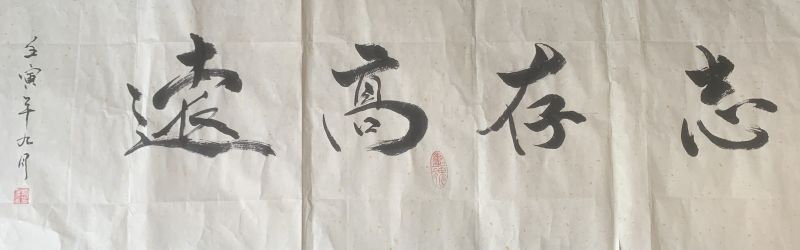 志存高遠
壬寅年九月